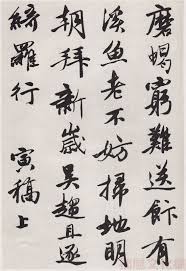 磨蝎窮難送飰有
溪魚老不妨掃地明
朝拜新歲吳趨且逐
綺羅行 寅稿上